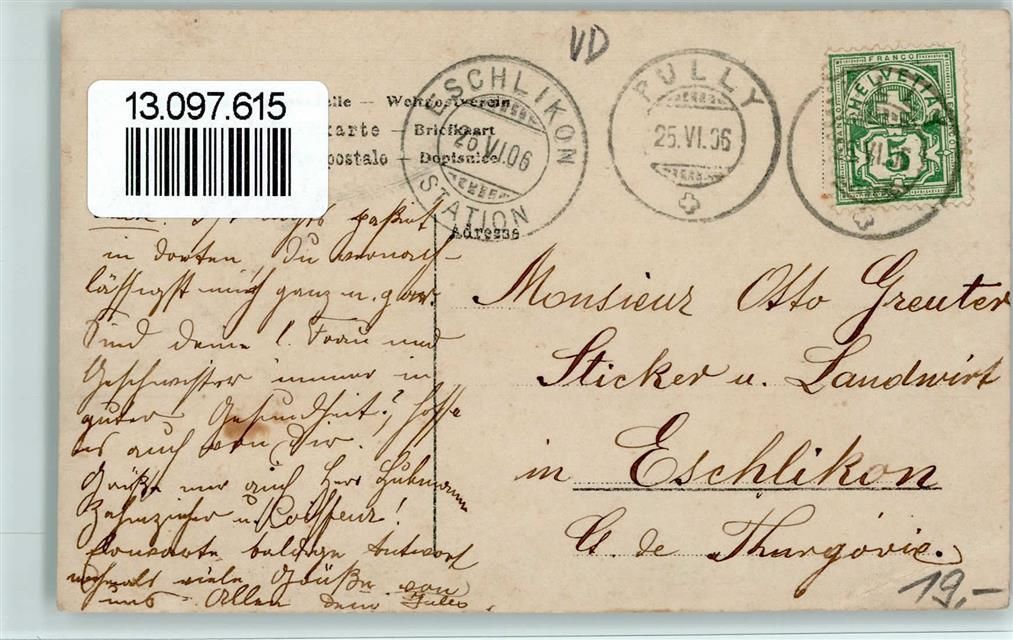 VD
13.097.615
elle — Weltpostverein
karte — Briefkaart
postale — Dopisnice
ESCHLIKON
26 VI.06
STATION
PULLY
25.VI.06
FRANCO
HELVETIA
5
Adresse
passiert
in dorten Du
lässigst mich ganz u. gar.
Sind deine l. Frau und
Geschwister immer in
guter Gesundheit? hoffe
es auch von Dir.
Grüße mir auch Herr
Zahnzieher u. Coiffeur!
Erwarte baldige Antwort
nochmals viele Grüße von
uns Allen Dein Jules.
Monsieur Otto Greuter
Sticker u. Landwirt
in Eschlikon
Ct. de Thurgovie.
19,-